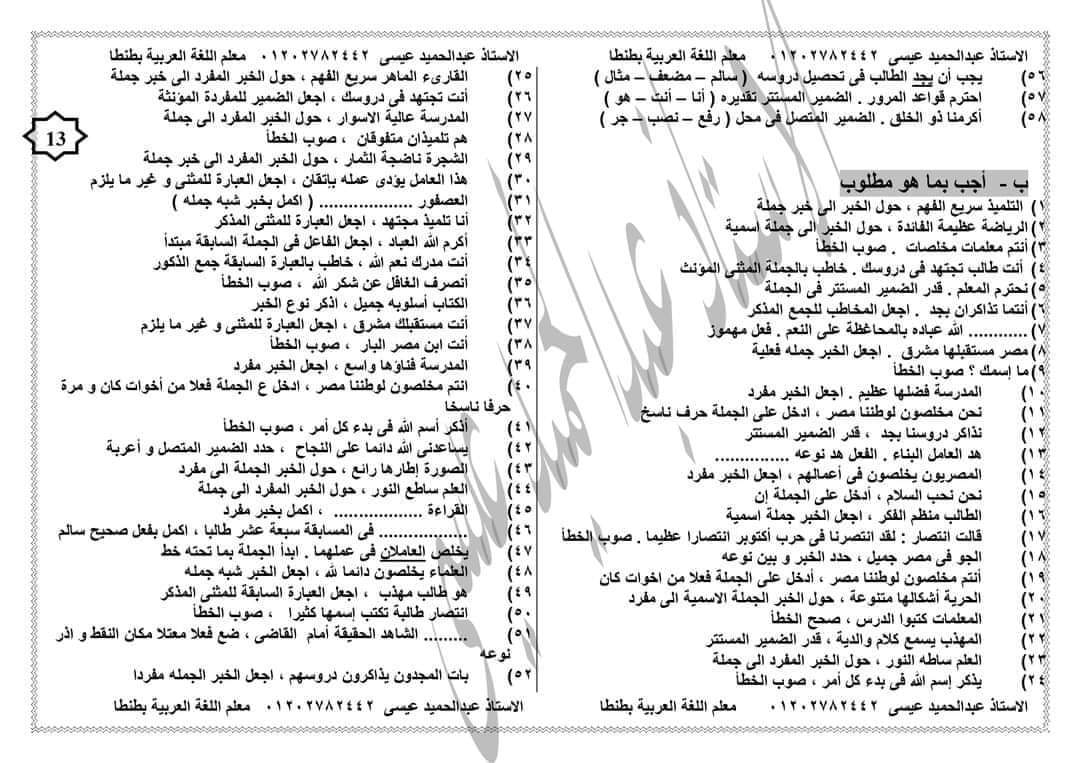 الاستاذ عبدالحميد عيسى ٠١٢٠٢٧٨٢٤٤٢ معلم اللغة العربية بطنطا
٥٦) يجب أن يجد الطالب فى تحصيل دروسه ( سالم – مضعف – مثال )
٥٧) احترم قواعد المرور . الضمير المستتر تقديره ( أنا – أنت – هو )
٥٨) أكرمنا ذو الخلق . الضمير المتصل فى محل ( رفع – نصب – جر )
ب - أجب بما هو مطلوب
١) التلميذ سريع الفهم ، حول الخبر الى خبر جملة
٢) الرياضة عظيمة الفائدة ، حول الخبر الى جملة اسمية
٣) أنتم معلمات مخلصات . صوب الخطأ
٤) أنت طالب تجتهد فى دروسك . خاطب بالجملة المثنى المؤنث
٥) نحترم المعلم . قدر الضمير المستتر فى الجملة
٦) أنتما تذاكران بجد . اجعل المخاطب للجمع المذكر
٧) ............ الله عباده بالمحاغظة على النعم . فعل مهموز
٨) مصر مستقبلها مشرق . اجعل الخبر جمله فعلية
٩) ما إسمك ؟ صوب الخطأ
١٠) المدرسة فضلها عظيم . اجعل الخبر مفرد
١١) نحن مخلصون لوطننا مصر ، ادخل على الجملة حرف ناسخ
١٢) نذاكر دروسنا بجد ، قدر الضمير المستتر
١٣) هد العامل البناء . الفعل هد نوعه ...............
١٤) المصريون يخلصون فى أعمالهم ، اجعل الخبر مفرد
١٥) نحن نحب السلام ، أدخل على الجملة إن
١٦) الطالب منظم الفكر ، اجعل الخبر جملة اسمية
١٧) قالت انتصار : لقد انتصرنا فى حرب أكتوبر انتصارا عظيما . صوب الخطأ
١٨) الجو فى مصر جميل ، حدد الخبر و بين نوعه
١٩) أنتم مخلصون لوطننا مصر ، أدخل على الجملة فعلا من اخوات كان
٢٠) الحرية أشكالها متنوعة ، حول الخبر الجملة الاسمية الى مفرد
٢١) المعلمات كتبوا الدرس ، صحح الخطأ
٢٢) المهذب يسمع كلام والدية ، قدر الضمير المستتر
٢٣) العلم ساطه النور ، حول الخبر المفرد الى جملة
٢٤) يذكر إسم الله فى بدء كل أمر ، صوب الخطأ
الاستاذ عبدالحميد عيسى ٠١٢٠٢٧٨٢٤٤٢ معلم اللغة العربية بطنطا
الاستاذ عبدالحميد عيسى ٠١٢٠٢٧٨٢٤٤٢ معلم اللغة العربية بطنطا
13
٢٥) القارىء الماهر سريع الفهم ، حول الخبر المفرد الى خبر جملة
٢٦) أنت تجتهد فى دروسك ، اجعل الضمير للمفردة المؤنثة
٢٧) المدرسة عالية الاسوار ، حول الخبر المفرد الى جملة
٢٨) هم تلميذان متفوقان ، صوب الخطأ
٢٩) الشجرة ناضجة الثمار ، حول الخبر المفرد الى خبر جملة
٣٠) هذا العامل يؤدى عمله بإتقان ، اجعل العبارة للمثنى و غير ما يلزم
٣١) العصفور ................... ( اكمل بخبر شبه جمله )
٣٢) أنا تلميذ مجتهد ، اجعل العبارة للمثنى المذكر
٣٣) أكرم الله العباد ، اجعل الفاعل فى الجملة السابقة مبتدأ
٣٤) أنت مدرك نعم الله ، خاطب بالعبارة السابقة جمع الذكور
٣٥) أنصرف الغافل عن شكر الله ، صوب الخطأ
٣٦) الكتاب أسلوبه جميل ، اذكر نوع الخبر
٣٧) أنت مستقبلك مشرق ، اجعل العبارة للمثنى و غير ما يلزم
٣٨) أنت ابن مصر البار ، صوب الخطأ
٣٩) المدرسة فناؤها واسع ، اجعل الخبر مفرد
٤٠) انتم مخلصون لوطننا مصر ، ادخل ع الجملة فعلا من أخوات كان و مرة
حرفا ناسخا
٤١) أذكر أسم الله فى بدء كل أمر ، صوب الخطأ
٤٢) يساعدنى الله دائما على النجاح ، حدد الضمير المتصل و أعربة
٤٣) الصورة إطارها رائع ، حول الخبر الجملة الى مفرد
٤٤) العلم ساطع النور ، حول الخبر المفرد الى جملة
٤٥) القراءة .................. ، اكمل بخبر مفرد
٤٦) .................. فى المسابقة سبعة عشر طالبا ، اكمل بفعل صحيح سالم
٤٧) يخلص العاملان فى عملهما . ابدأ الجملة بما تحته خط
٤٨) العلماء يخلصون دائما لله ، اجعل الخبر شبه جمله
٤٩) هو طالب مهذب ، اجعل العبارة السابقة للمثنى المذكر
٥٠) انتصار طالبة تكتب إسمها كثيرا ، صوب الخطأ
٥١) ......... الشاهد الحقيقة أمام القاضى ، ضع فعلا معتلا مكان النقط و اذر
نوعه
٥٢) بات المجدون يذاكرون دروسهم ، اجعل الخبر الجمله مفردا
الاستاذ عبدالحميد عيسى ٠١٢٠٢٧٨٢٤٤٢ معلم اللغة العربية بطنطا
الاستاذ عبد الحميد عيسى